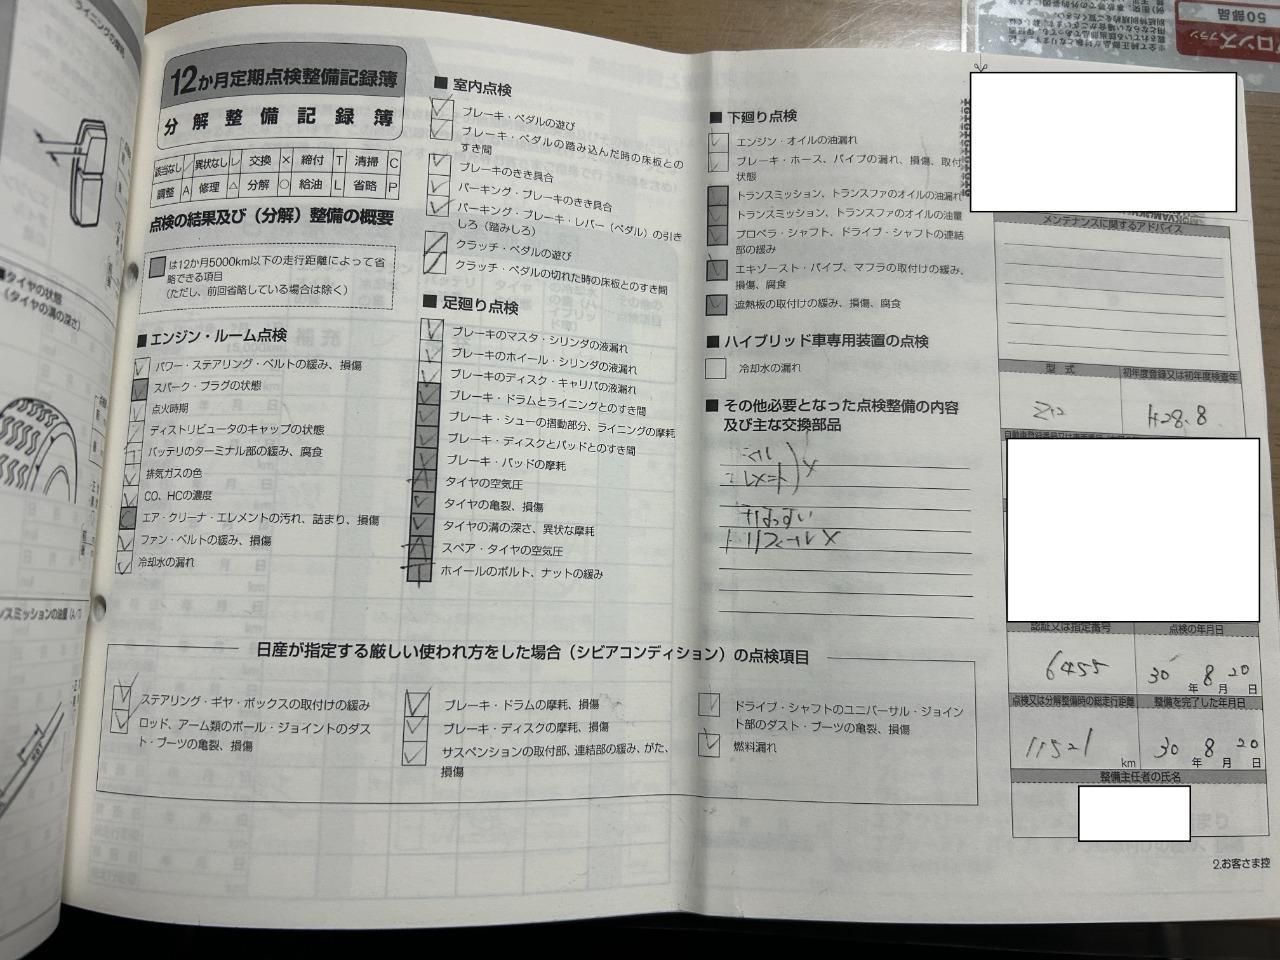 12か月定期点検整備記録簿
分解整備記録簿
該当なし ／ 異状なし レ 交換 × 締付 T 清掃 C
調整 A 修理 △ 分解 ○ 給油 L 省略 P
点検の結果及び（分解）整備の概要
は12か月5000km以下の走行距離によって省
略できる項目
（ただし、前回省略している場合は除く）
■エンジン・ルーム点検
パワー・ステアリング・ベルトの緩み、損傷
スパーク・プラグの状態
点火時期
ディストリビュータのキャップの状態
バッテリのターミナル部の緩み、腐食
排気ガスの色
CO、HCの濃度
エア・クリーナ・エレメントの汚れ、詰まり、損傷
ファン・ベルトの緩み、損傷
冷却水の漏れ
■室内点検
ブレーキ・ペダルの遊び
ブレーキ・ペダルの踏み込んだ時の床板との
すき間
ブレーキのきき具合
パーキング・ブレーキのきき具合
パーキング・ブレーキ・レバー（ペダル）の引き
しろ（踏みしろ）
クラッチ・ペダルの遊び
クラッチ・ペダルの切れた時の床板とのすき間
■足廻り点検
ブレーキのマスタ・シリンダの液漏れ
ブレーキのホイール・シリンダの液漏れ
ブレーキのディスク・キャリパの液漏れ
ブレーキ・ドラムとライニングとのすき間
ブレーキ・シューの摺動部分、ライニングの摩耗
ブレーキ・ディスクとパッドとのすき間
ブレーキ・パッドの摩耗
タイヤの空気圧
タイヤの亀裂、損傷
タイヤの溝の深さ、異状な摩耗
スペア・タイヤの空気圧
ホイールのボルト、ナットの緩み
■下廻り点検
エンジン・オイルの油漏れ
ブレーキ・ホース、パイプの漏れ、損傷、取付
状態
トランスミッション、トランスファのオイルの油漏れ
トランスミッション、トランスファのオイルの油量
プロペラ・シャフト、ドライブ・シャフトの連結
部の緩み
エキゾースト・パイプ、マフラの取付けの緩み、
損傷、腐食
遮熱板の取付けの緩み、損傷、腐食
■ハイブリッド車専用装置の点検
冷却水の漏れ
■その他必要となった点検整備の内容
及び主な交換部品
メンテナンスに関するアドバイス
型式
初年度登録又は初年度検査年
Z12
H28.8
認証又は指定番号
点検の年月日
6455
30年8月20日
点検又は分解整備時の総走行距離
整備を完了した年月日
11521 km
30年8月20日
整備主任者の氏名
日産が指定する厳しい使われ方をした場合（シビアコンディション）の点検項目
ステアリング・ギヤ・ボックスの取付けの緩み
ロッド、アーム類のボール・ジョイントのダス
ト・ブーツの亀裂、損傷
ブレーキ・ドラムの摩耗、損傷
ブレーキ・ディスクの摩耗、損傷
サスペンションの取付部、連結部の緩み、がた、
損傷
ドライブ・シャフトのユニバーサル・ジョイン
ト部のダスト・ブーツの亀裂、損傷
燃料漏れ
2.お客さま控
タイヤの状態
（タイヤの溝の深さ）
50部品